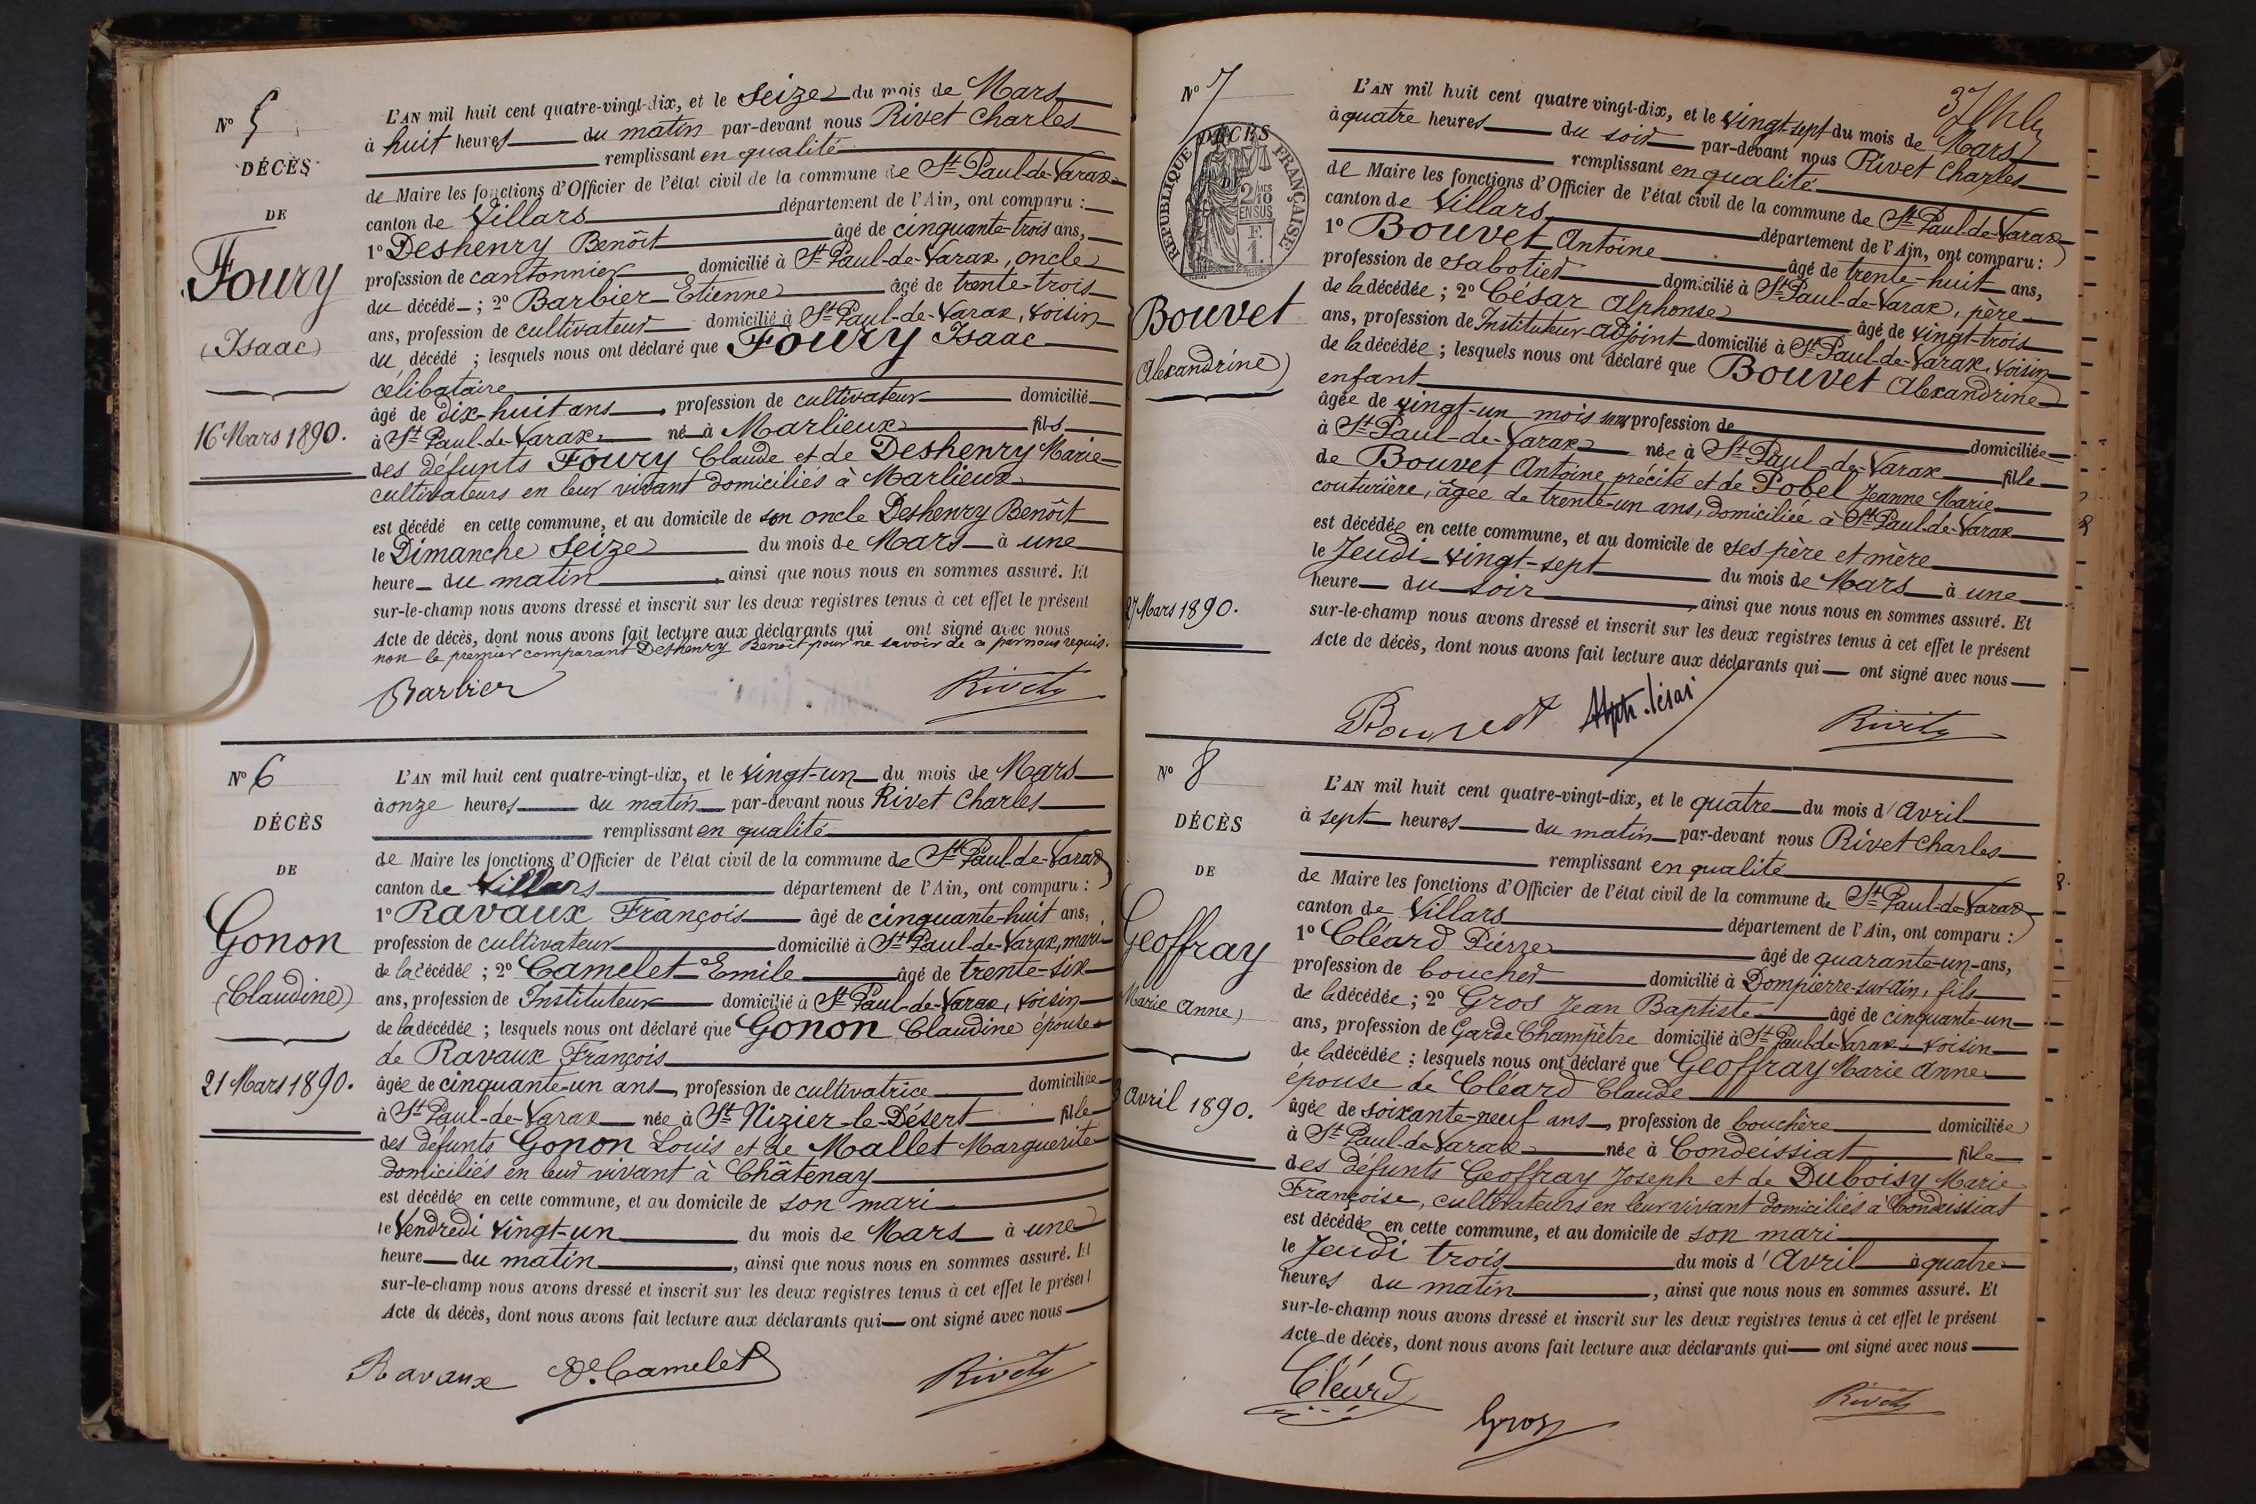 N° 5
DÉCÈS
DE
Foury
(Isaac)
16 Mars 1890.
L'AN mil huit cent quatre-vingt-dix, et le Seize du mois de Mars
à huit heures du matin par-devant nous Rivet Charles
remplissant en qualité
de Maire les fonctions d'Officier de l'état civil de la commune de St Paul-de-Varax
canton de Villars département de l'Ain, ont comparu :
1° Deshenry Benoît âgé de cinquante-trois ans,
profession de cantonnier domicilié à St Paul-de-Varax, oncle
du décédé ; 2° Barbier Etienne âgé de trente-trois
ans, profession de cultivateur domicilié à St Paul-de-Varax, voisin
du décédé ; lesquels nous ont déclaré que Foury Isaac
célibataire
âgé de dix-huit ans, profession de cultivateur domicilié
à St Paul-de-Varax né à Marlieux fils
des défunts Foury Claude et de Deshenry Marie
cultivateurs en leur vivant domiciliés à Marlieux
est décédé en cette commune, et au domicile de son oncle Deshenry Benoît
le Dimanche Seize du mois de Mars à une
heure du matin, ainsi que nous nous en sommes assuré. Et
sur-le-champ nous avons dressé et inscrit sur les deux registres tenus à cet effet le présent
Acte de décès, dont nous avons fait lecture aux déclarants qui ont signé avec nous
non le premier comparant Deshenry Benoît pour ne savoir de ce par nous requis.
Barbier Rivet
N° 6
DÉCÈS
DE
Gonon
(Claudine)
21 Mars 1890.
L'AN mil huit cent quatre-vingt-dix, et le vingt-un du mois de Mars
à onze heures du matin par-devant nous Rivet Charles
remplissant en qualité
de Maire les fonctions d'Officier de l'état civil de la commune de St Paul-de-Varax
canton de Villars département de l'Ain, ont comparu :
1° Ravaux François âgé de cinquante-huit ans,
profession de cultivateur domicilié à St Paul-de-Varax, mari
de la décédée ; 2° Camelet Emile âgé de trente-six
ans, profession de Instituteur domicilié à St Paul-de-Varax, voisin
de la décédée ; lesquels nous ont déclaré que Gonon Claudine épouse
de Ravaux François
âgée de cinquante-un ans, profession de cultivatrice domiciliée
à St Paul-de-Varax née à St Nizier-le-Désert fille
des défunts Gonon Louis et de Mallet Marguerite
domiciliés en leur vivant à Châtenay
est décédée en cette commune, et au domicile de son mari
le Vendredi vingt-un du mois de Mars à une
heure du matin, ainsi que nous nous en sommes assuré. Et
sur-le-champ nous avons dressé et inscrit sur les deux registres tenus à cet effet le présent
Acte de décès, dont nous avons fait lecture aux déclarants qui ont signé avec nous
Ravaux Camelet Rivet
N° 7
DÉCÈS
DE
RÉPUBLIQUE FRANÇAISE
2/10 EN SUS
F. 1.
Bouvet
(Alexandrine)
27 Mars 1890.
L'AN mil huit cent quatre vingt-dix, et le vingt-sept du mois de Mars
à quatre heures du soir par-devant nous Rivet Charles
remplissant en qualité
de Maire les fonctions d'Officier de l'état civil de la commune de St Paul-de-Varax
canton de Villars département de l'Ain, ont comparu :
1° Bouvet Antoine âgé de trente-huit ans,
profession de sabotier domicilié à St Paul-de-Varax, père
de la décédée ; 2° César Alphonse âgé de vingt-trois
ans, profession de Instituteur-Adjoint domicilié à St Paul-de-Varax, voisin
de la décédée ; lesquels nous ont déclaré que Bouvet Alexandrine
enfant
âgée de vingt-un mois sans profession de domiciliée
à St Paul-de-Varax née à St Paul-de-Varax fille
de Bouvet Antoine précité et de Pobel Jeanne Marie
couturière, âgée de trente-un ans, domiciliée à St Paul-de-Varax
est décédée en cette commune, et au domicile de ses père et mère
le Jeudi vingt-sept du mois de Mars à une
heure du soir, ainsi que nous nous en sommes assuré. Et
sur-le-champ nous avons dressé et inscrit sur les deux registres tenus à cet effet le présent
Acte de décès, dont nous avons fait lecture aux déclarants qui ont signé avec nous
Bouvet Alph. César Rivet
N° 8
DÉCÈS
DE
Geoffray
Marie Anne)
3 Avril 1890.
L'AN mil huit cent quatre-vingt-dix, et le quatre du mois d'Avril
à sept heures du matin par-devant nous Rivet Charles
remplissant en qualité
de Maire les fonctions d'Officier de l'état civil de la commune de St Paul-de-Varax
canton de Villars département de l'Ain, ont comparu :
1° Cléard Pierre âgé de quarante-un ans,
profession de boucher domicilié à Dompierre-sur-Ain, fils
de la décédée ; 2° Gros Jean Baptiste âgé de cinquante-un
ans, profession de Garde Champêtre domicilié à St Paul-de-Varax voisin
de la décédée ; lesquels nous ont déclaré que Geoffray Marie Anne
épouse de Cléard Claude
âgée de soixante-neuf ans, profession de bouchère domiciliée
à St Paul-de-Varax née à Condeissiat fille
des défunts Geoffray Joseph et de Duboisy Marie
Françoise, cultivateurs en leur vivant domiciliés à Condeissiat
est décédée en cette commune, et au domicile de son mari
le Jeudi trois du mois d'Avril à quatre
heures du matin, ainsi que nous nous en sommes assuré. Et
sur-le-champ nous avons dressé et inscrit sur les deux registres tenus à cet effet le présent
Acte de décès, dont nous avons fait lecture aux déclarants qui ont signé avec nous
Cléard Gros Rivet